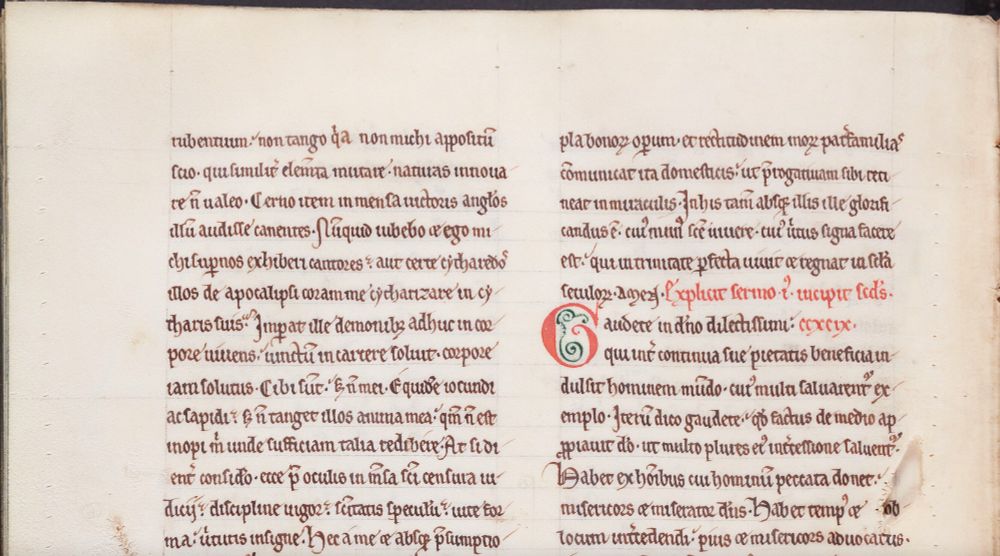 rubentium. non tango q̇a non michi appositū
scio. qui similit̄ elem̄ta mutare. naturas innoua
re n̄ ualeo. Cerno item in mensa uictoris angl̓os
illū audisse canentes. Nūquid iubebo ⁊ ego mi
chi sup̄nos exhiberi cantores; aut certe cytharedoꝝ
illos de apocalipsi coram me cytharizare in cy
tharis suis. Imp̄at ille demonibꝫ adhuc in cor
pore uiuens. uinctū in carcere soluit. corpore
iam solutus. Cibi sūt. sꝫ n̄ mei. Equidē iocundi
ac sapidi; sꝫ n̄ tanget illos anima mea. qm̄ n̄ est
inopi m̄ unde sufficiam talia reddibere. At si di
ent̄ consid̓o. ecce p̄ oculis in m̄sa sc̄i censura iu
dicij; discipline uigor; sc̄itatis speculū; uite for
ma; u̓tutis insigne. Hec a me ⁊ absqꝫ p̄sumptio
pla bonoꝝ opum. et rectitudinem moꝝ pat̄familias
cōmunicat ita domesticis; ut p̄rogatiuam sibi reti
neat in miraculis. In his tam̄ absqꝫ illis ille glorifi
candus ē. cui᾽ mun᾽ sc̄e uiuere. cui᾽ u̓tus signa facere
est. qui in trinitate ꝑfecta uiuit ⁊ regnat in sc̄la
seculoꝝ. amen. Explicit sermo .i. incipit sc̄ds.
Gaudete in dn̄o dilectissimi; ccxcix.
qui int̄ continua sue pietatis beneficia in
dulsit hominem mūdo. cui᾽ multi saluarent᾽ ex
emplo. Iterū dico gaudete. qd̓ factus de medio ap
ꝓpiauit dō. ut multo plures ei᾽ int̄cessione saluent᾽.
Habet ex hōibus cui hominū peccata donet.
misericors ⁊ miserator dn̄s. Habet temp᾽ ⁊ ob
locum int̄cedendi. pius ⁊ misericors aduocatus.